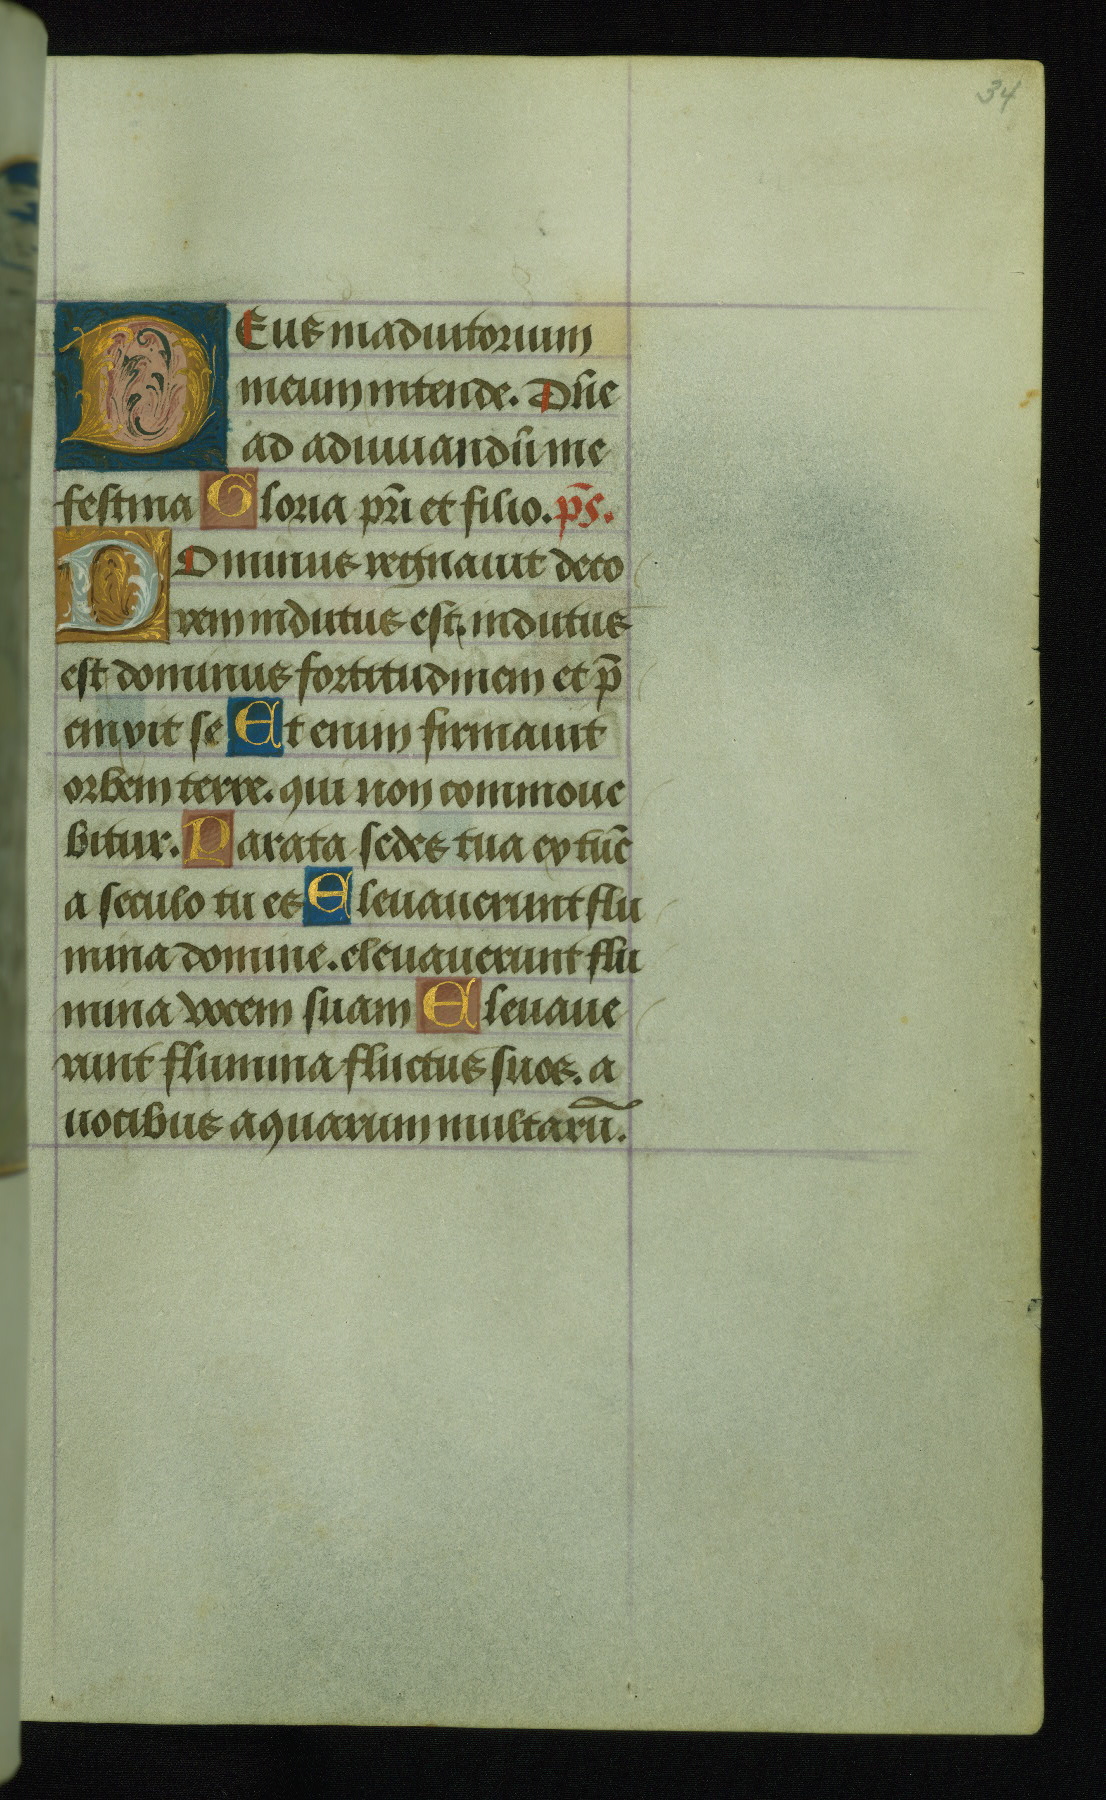 34
DEus in adiutorium
meum intende. Dn̄e
ad adiuuandū me
festina Gloria pr̄i et filio. p̄s.
DOminus regnauit deco
rem indutus est, indutus
est dominus fortitudinem et p̄
cinxit se Et enim firmauit
orbem terre. qui non commoue
bitur. Parata sedes tua ex tūc
a seculo tu es Eleuauerunt flu
mina domine. eleuauerunt flu
mina vocem suam Eleuaue
runt flumina fluctus suos. a
uocibus aquarum multarū.